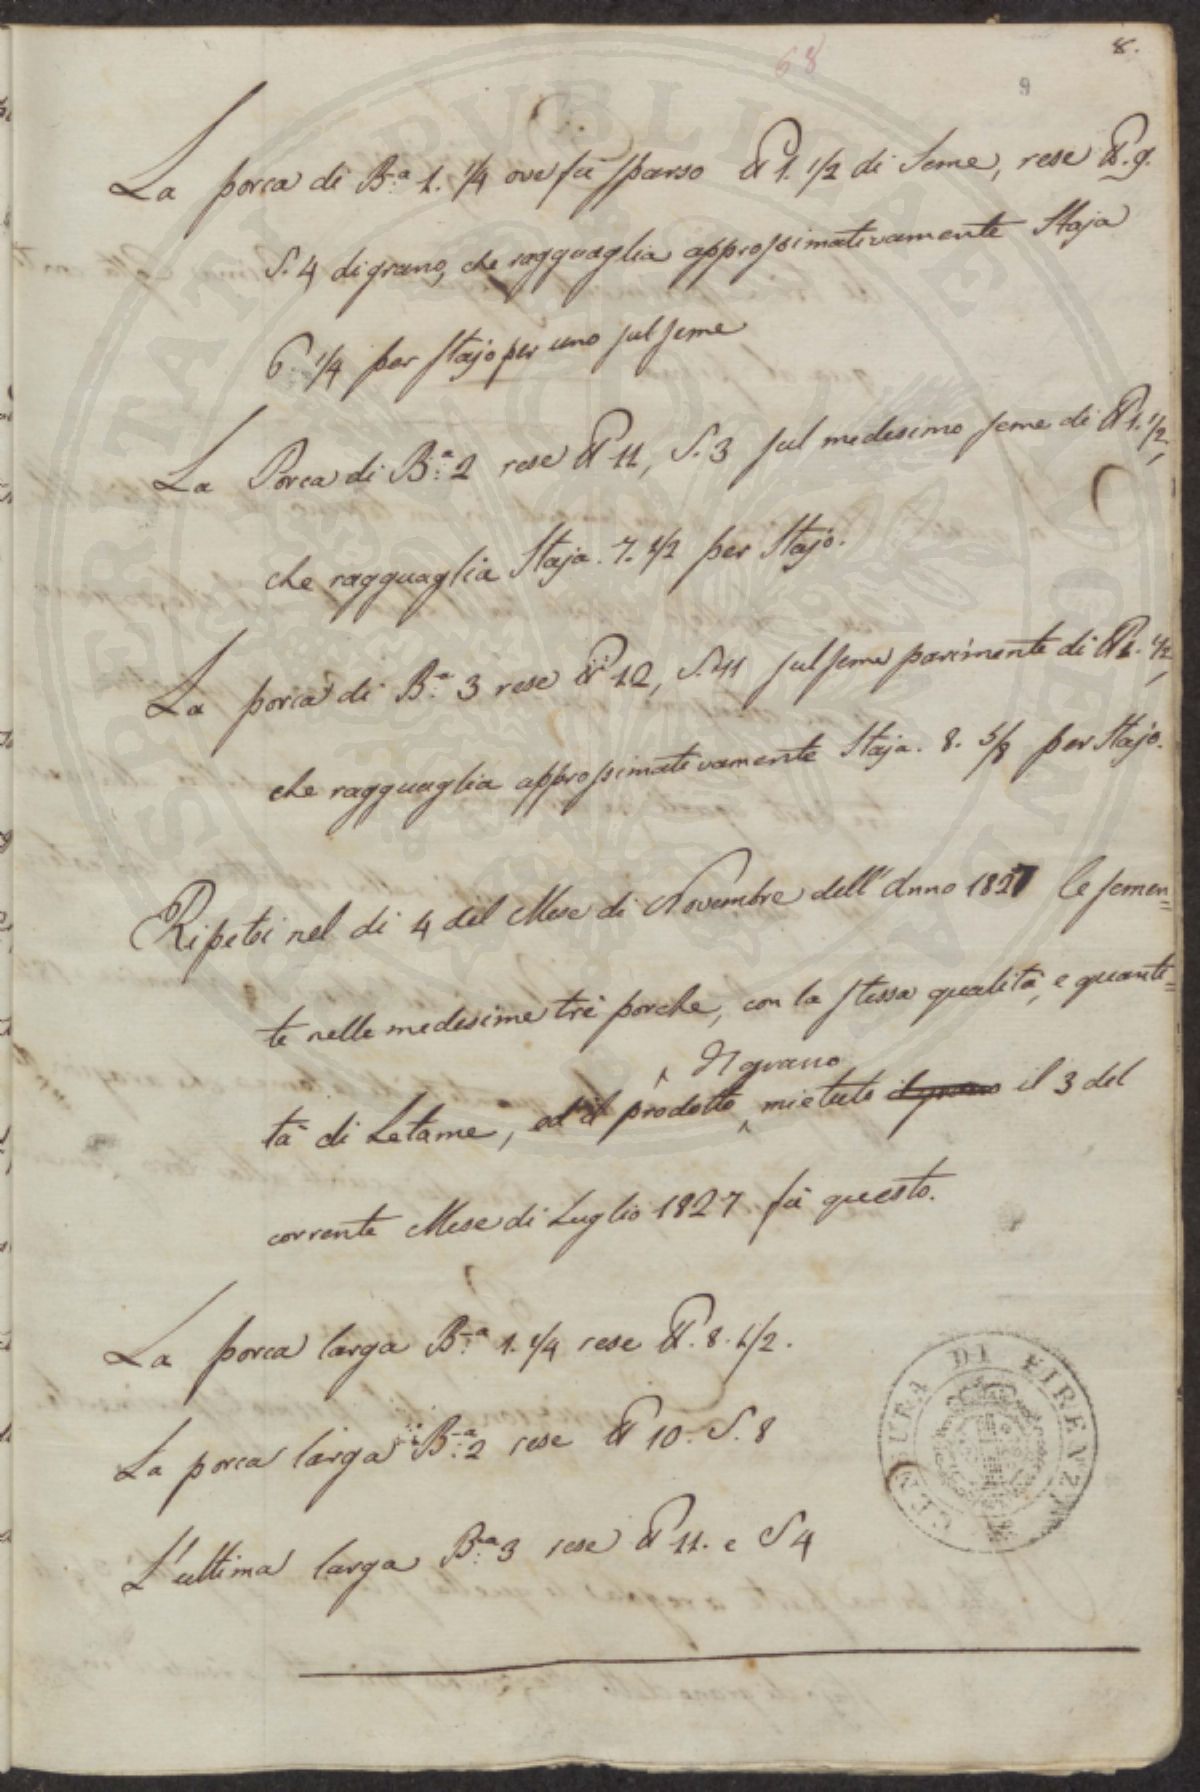 8.
68
9
La porca di B.ª 1. 1/4 ove fù sparso ℔ 1. 1/2 di Seme, rese ℔. 9.
S. 4 di grano, che ragguaglia approssimativamente Staja
6 1/4 per stajo per uno sul seme
La Porca di B.ª 2 rese ℔ 11, S. 3 sul medesimo seme di ℔ 1. 1/2,
che ragguaglia Staja. 7. 1/2 per Stajo.
La porca di B.ª 3 rese ℔ 12, S. 11 sul seme parimente di ℔ 1. 1/2,
che ragguaglia approssimativamente Staja. 8. 5/8 per Stajo.
Ripetei nel di 4 del Mese di Novembre dell'Anno 1827 le semen=
te nelle medesime tre porche, con la stessa qualità, e quanti=
di grano
tà di Letame, ed il prodotto, mietuto il grano il 3 del
corrente Mese di Luglio 1827 fù questo.
La porca larga B.ª 1. 1/4 rese ℔. 8. 1/2.
La porca larga B.ª 2 rese ℔ 10. S. 8
L'ultima larga B.ª 3 rese ℔ 11. e S 4
CENSURA DI FIRENZE
PROSPERITATI PUBLICAE AUGENDAE